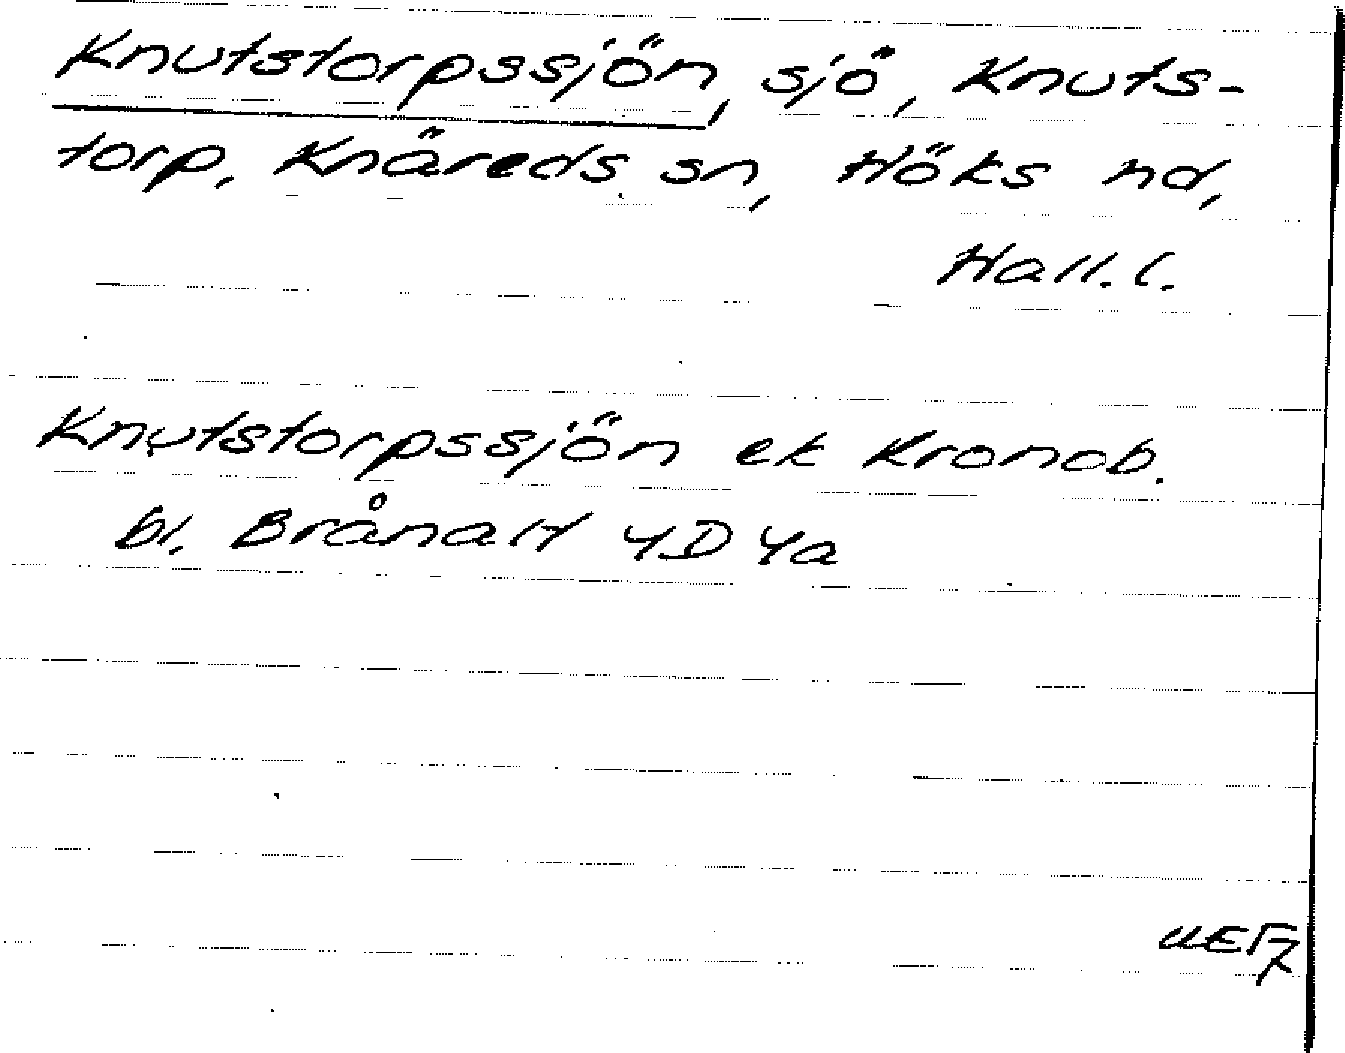 Knutstorpssjön, sjö, Knuts-
torp, Knäreds sn, Höks hd,
Hall. l.
Knutstorpssjön ek Kronob.
bl. Brånalt 4D 4a